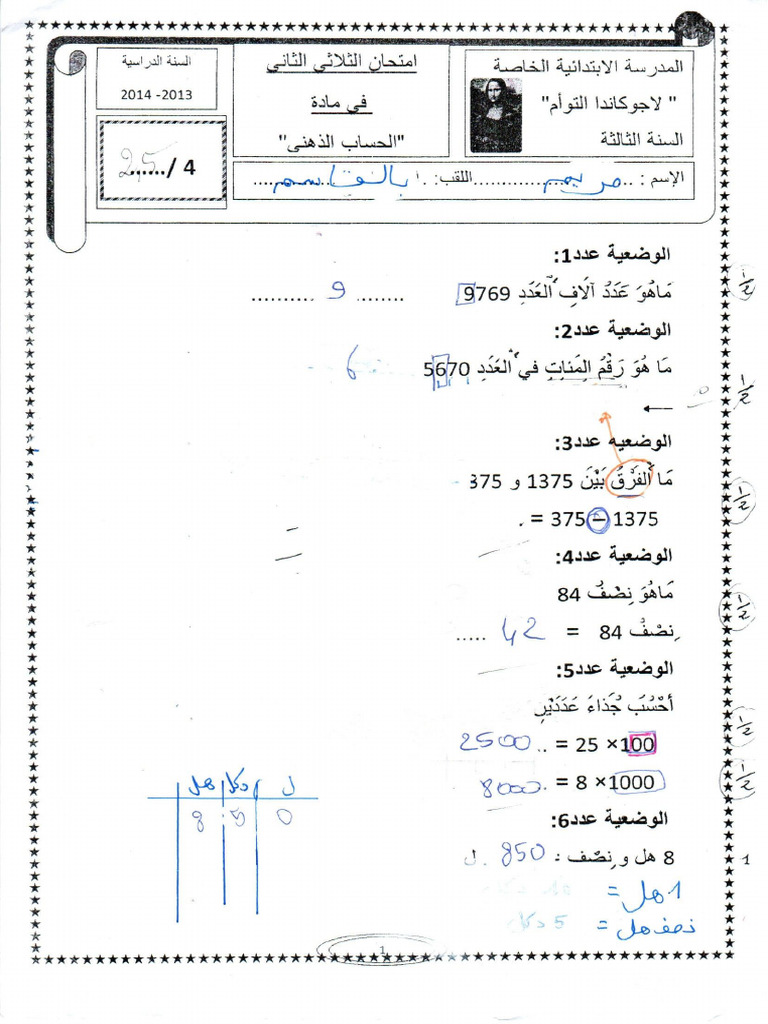 المدرسة الابتدائية الخاصة
" لاجوكاندا التوأم"
السنة الثالثة
امتحان الثلاثي الثاني
في مادة
"الحساب الذهني"
السنة الدراسية
2013- 2014
2,5 / 4
الإسم : مريم اللقب: بالقاسم
الوضعية عدد1:
مَاهُوَ عَدَدُ آلَافِ الْعَدَدِ 9769 ........ 9 ..........
الوضعية عدد2:
مَا هُوَ رَقْمُ المِئاتِ في الْعَدَدِ 5670 6
الوضعية عدد3:
مَا الْفَرْقُ بَيْنَ 1375 و 375
1375 – 375 = .
الوضعية عدد4:
مَاهُوَ نِصْفُ 84
نِصْفُ 84 = 42 .....
الوضعية عدد5:
أحْسُبَ جُذاءَ عَدَدَيْنِ
100× 25 = .. 2500
1000× 8 = .. 8000
الوضعية عدد6:
8 هل و نِصْف : 850 ل
1 هل =
نصف هل = 5 دكل
هل دكل ل
8 5 0
1/2
1/2
1/2
1/2
1/2
1/2
1
1